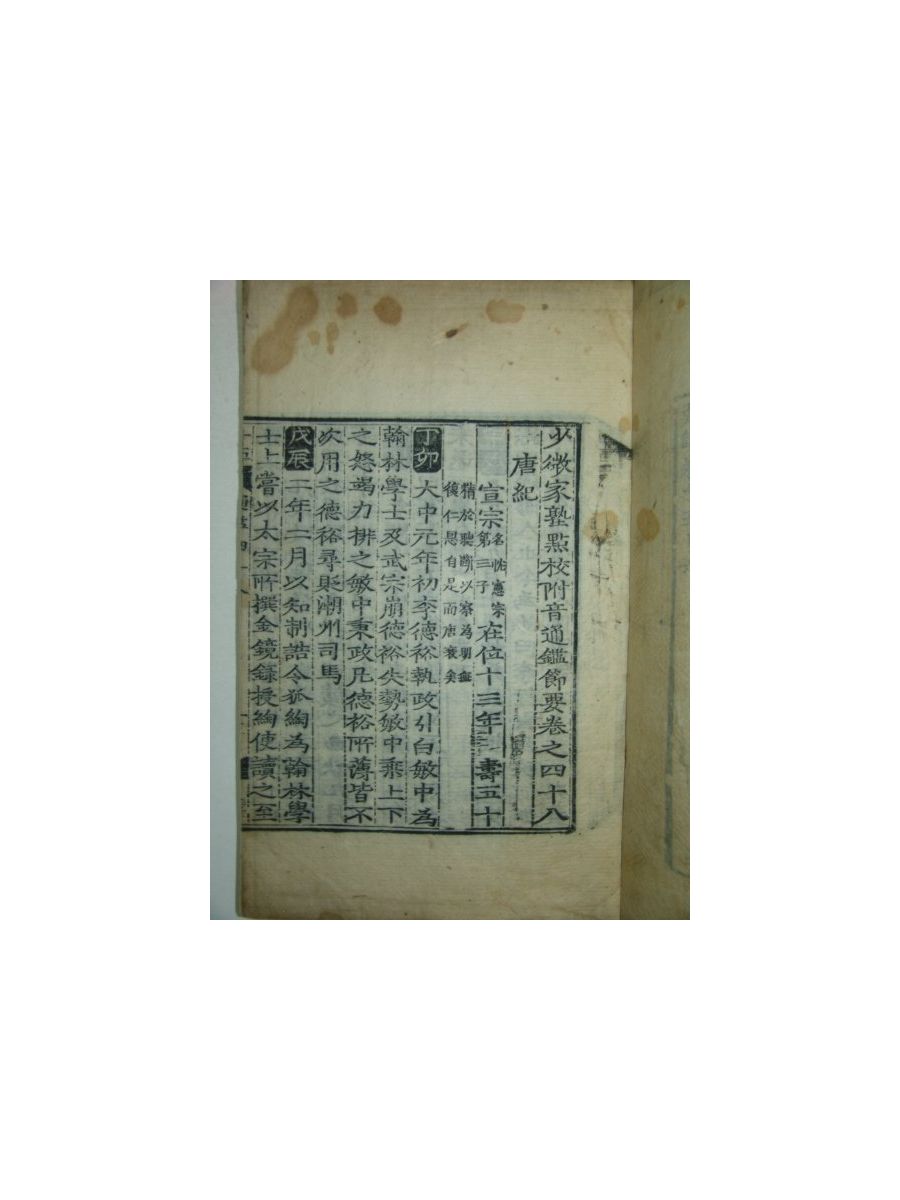 少微家塾點校附音通鑑節要卷之四十八
唐紀
宣宗 名忱憲宗第三子 在位十三年 壽五十
精於聽斷以察爲明無
復仁恩自是而唐衰矣
丁卯 大中元年初李德裕執政引白敏中為
翰林學士及武宗崩德裕失勢敏中乘上下
之怨竭力排之敏中秉政凡德裕所薄皆不
次用之德裕尋貶潮州司馬
戊辰 二年二月以知制誥令狐綯為翰林學
士上嘗以太宗所撰金鏡錄授綯使讀之至